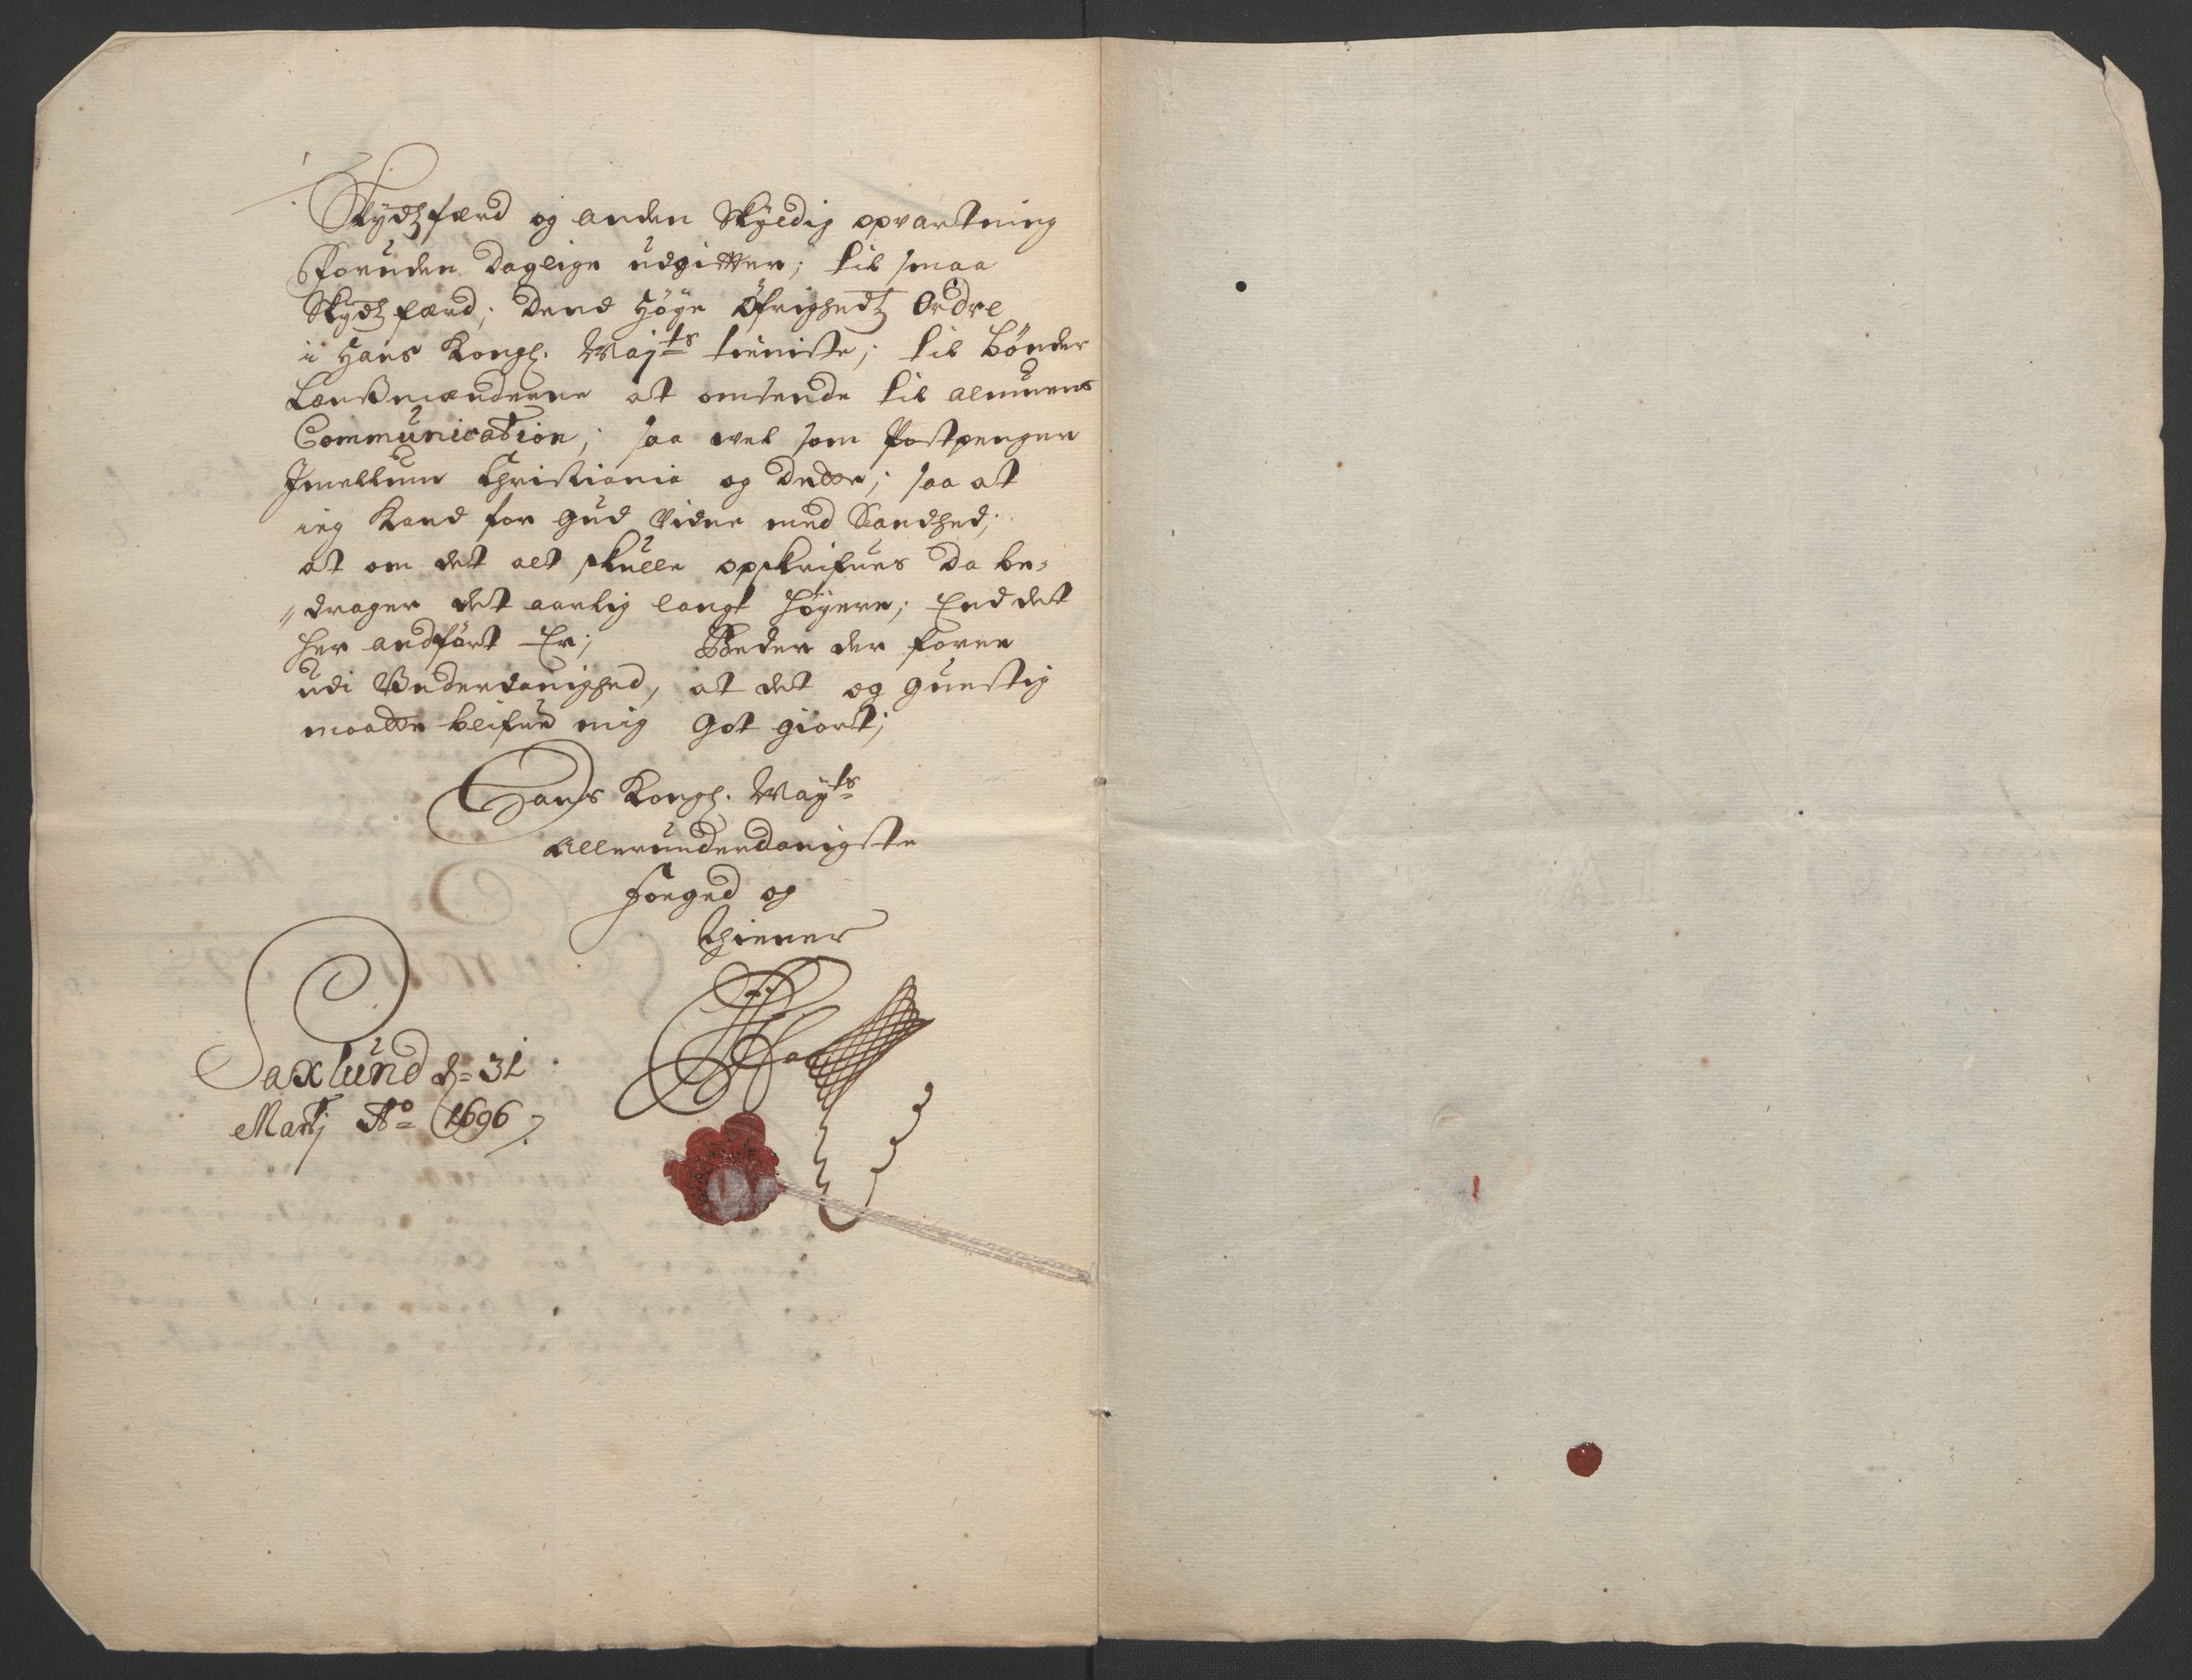 Skydtzferd og anden Skyldig opvartning
Foruden Daglige udgitter; till smaa
Skydtzferd; Dend Høye Øfrighedtz Ordre
i Hans Kongl. Mayts tieniste; till bønder
Lensmænderne at omsende till almuens
Communication; saa vel som Postpenger
Imellum Christiania og dette; saa at
ieg Kand for gud vidne med Sandhed;
at om det alt skulle opskrifues da be-
drager det aarlig langt høyere; End det
her andført Er; Beder der forre
udi Underdanighed, at det og gunstig
maatte blifue mig Got giort;
Hans Kongl. Mayts
Allerunderdanigste
Foeged og
thiener
Saxlund d= 31
Martj Ao 1696